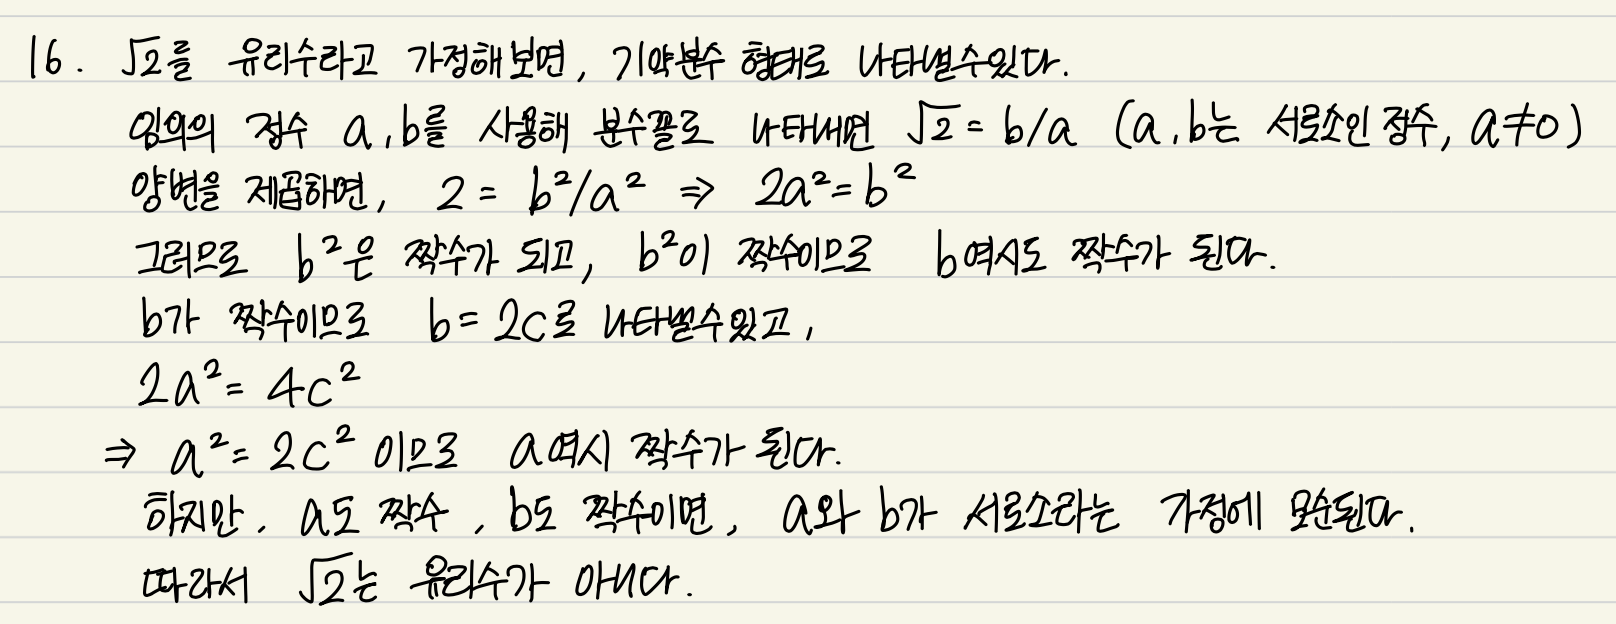 16. √2를 유리수라고 가정해보면, 기약분수 형태로 나타낼수있다.
임의의 정수 a, b를 사용해 분수꼴로 나타내면 √2 = b/a (a, b는 서로소인 정수, a≠0)
양변을 제곱하면, 2 = b²/a² ⇒ 2a² = b²
그러므로 b²은 짝수가 되고, b²이 짝수이므로 b역시도 짝수가 된다.
b가 짝수이므로 b = 2c로 나타낼수있고,
2a² = 4c²
⇒ a² = 2c² 이므로 a역시 짝수가 된다.
하지만, a도 짝수, b도 짝수이면, a와 b가 서로소라는 가정에 모순된다.
따라서 √2는 유리수가 아니다.